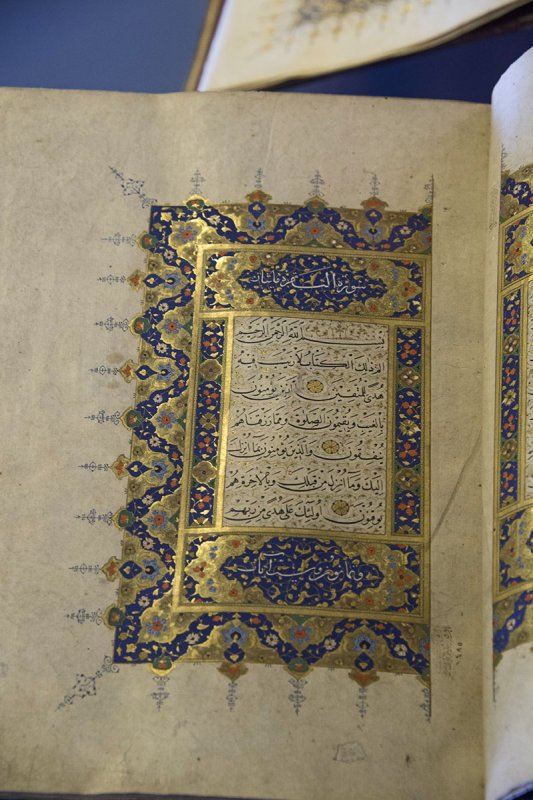 سورة البقرة مائتان
بسم الله الرحمن الرحيم
الم ذلك الكتاب لا ريب فيه
هدى للمتقين الذين يؤمنون
بالغيب ويقيمون الصلوة ومما رزقناهم
ينفقون والذين يؤمنون بما انزل
اليك وما انزل من قبلك وبالاخرة هم
يوقنون اولئك على هدى من ربهم
وثمانون وست ايات